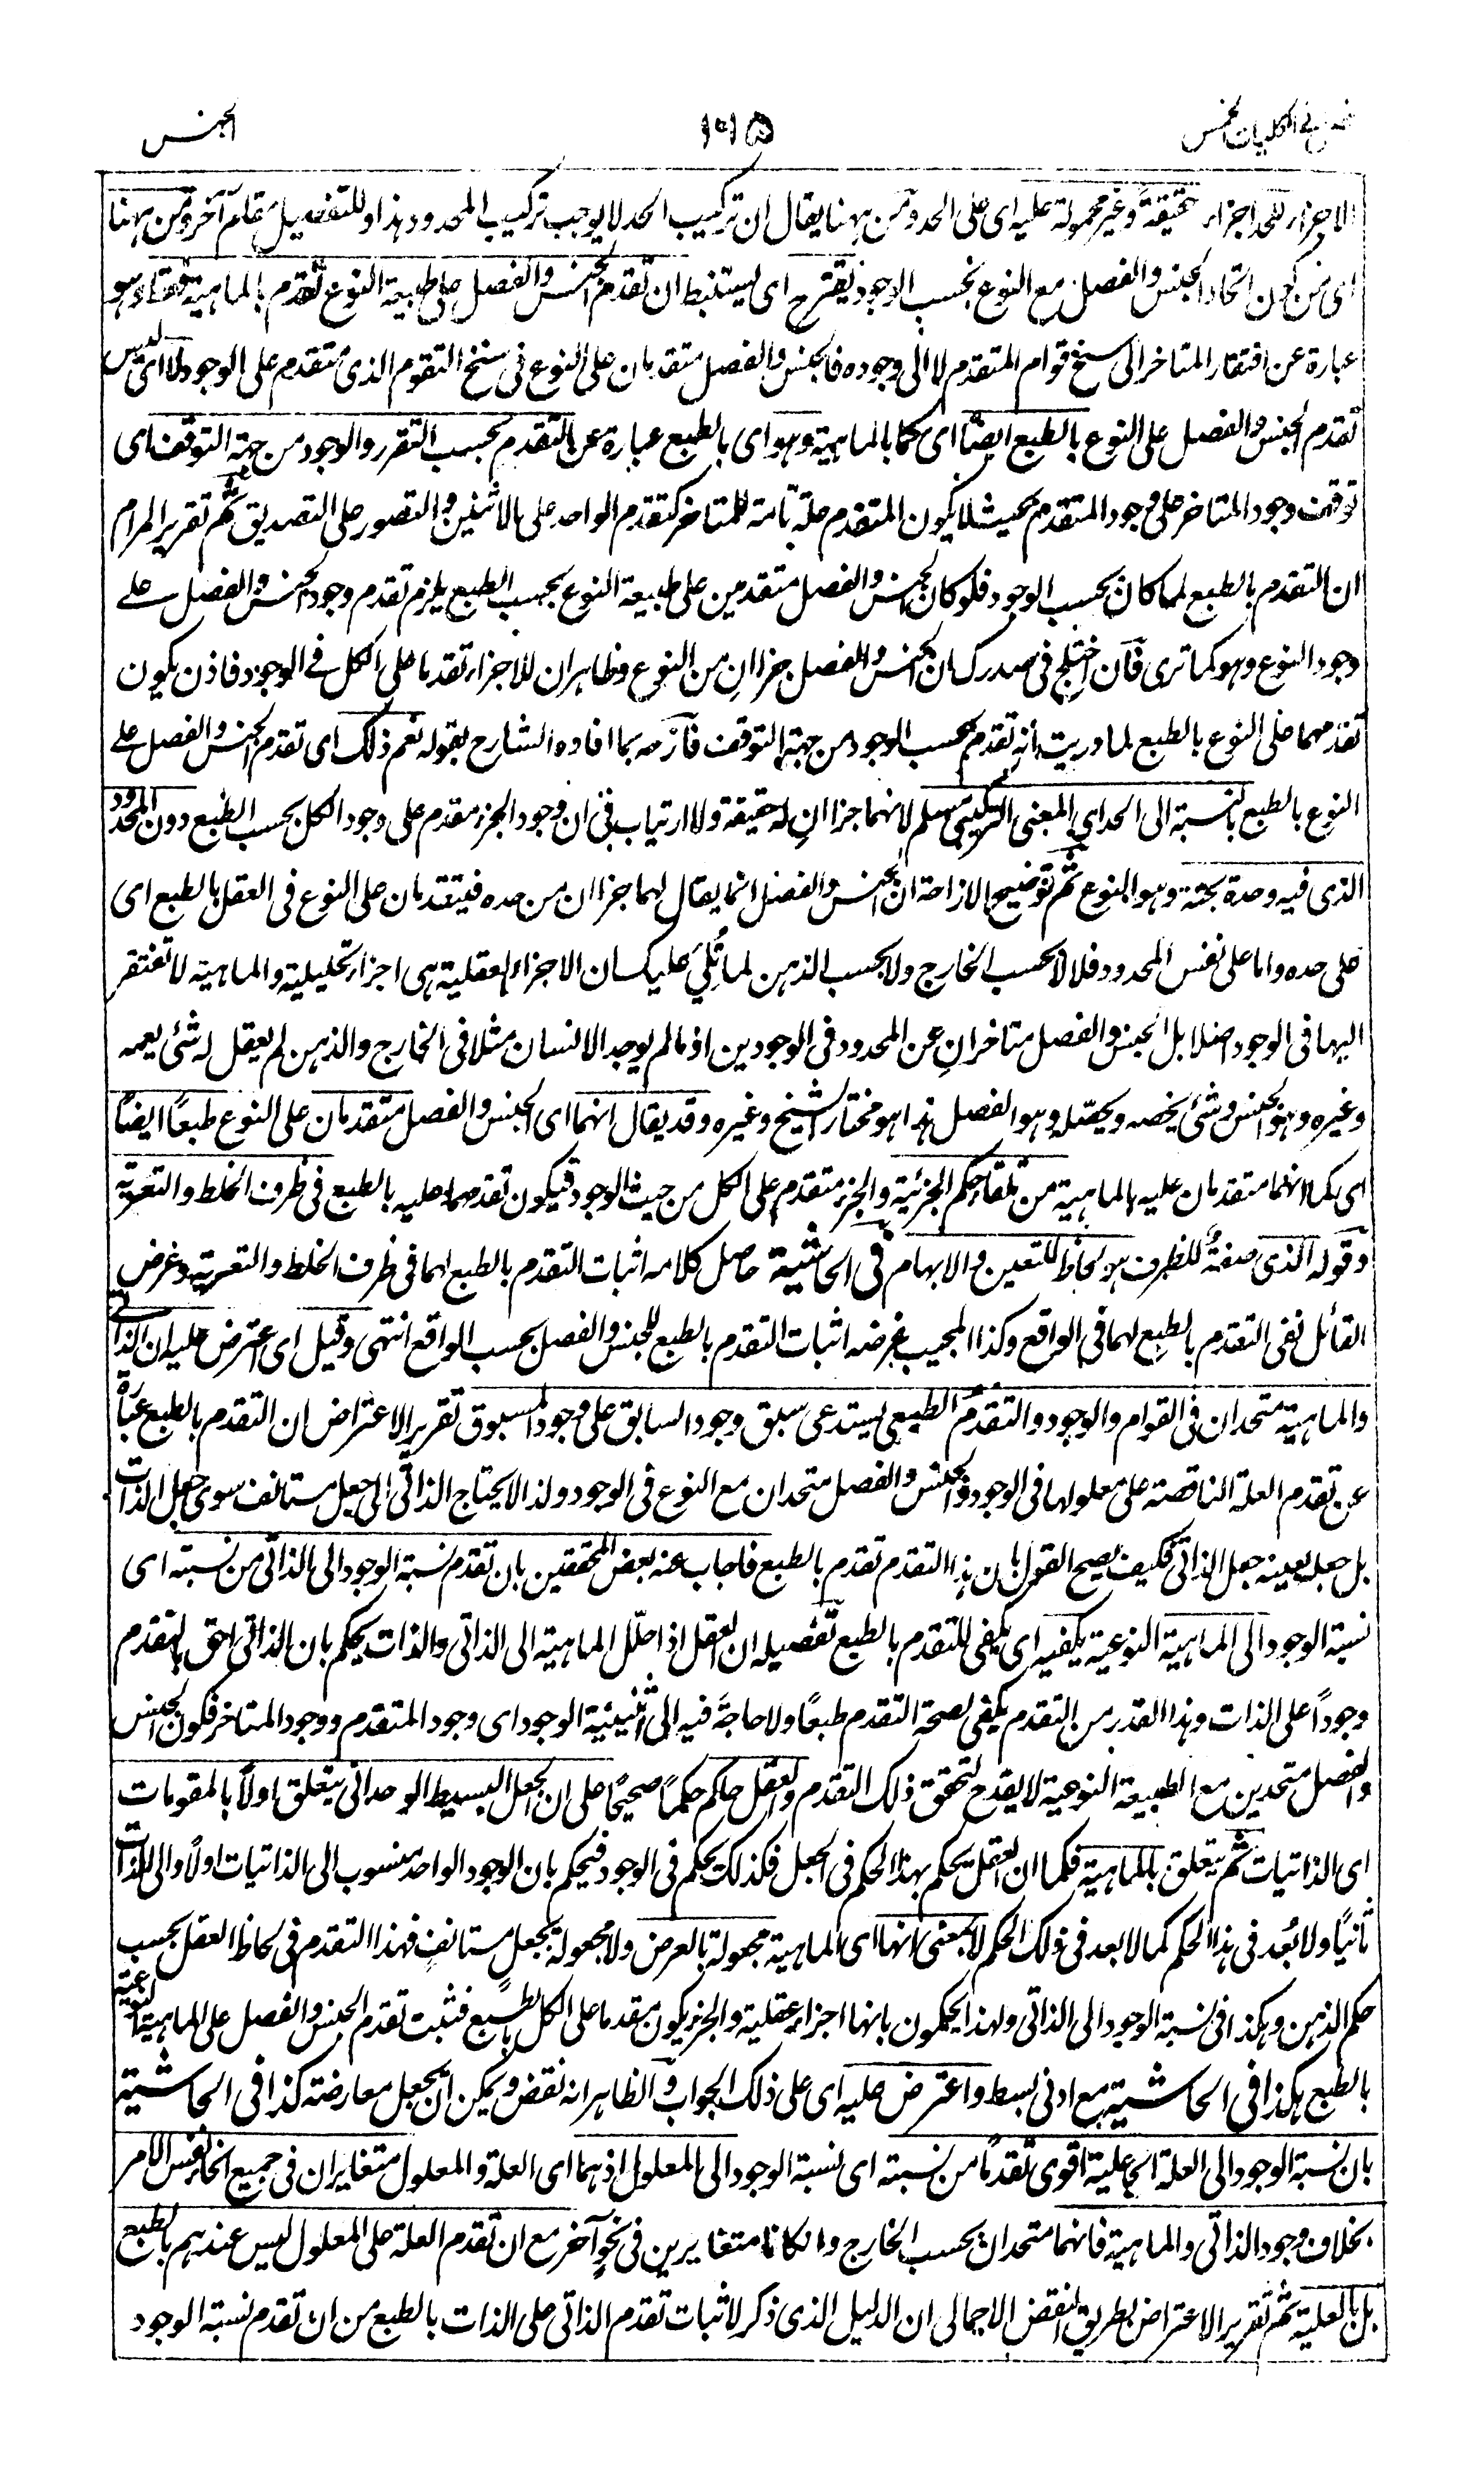 فصل في الكليات الخمس
١٢٥
الجنس
الاجزاء للحد اجزاء حقيقةً وغير محمولة عليه اى على الحد ومن ههنا يقال ان تركيب الحد لا يوجب تركيب المحدود هذا وللتفصيل مقام آخر ومن ههنا
اى من كون اتحاد الجنس والفصل مع النوع بحسب الوجود يقترح اى يستنبط ان تقدم الجنس والفصل على طبيعة النوع تقدم بالماهية فقط وهو
عبارة عن افتقار المتاخر الى سنخ قوام المتقدم لا الى وجوده فالجنس والفصل متقدمان على النوع فى سنخ التقوم الذى متقدم على الوجود لا اى ليس
تقدم الجنس والفصل على النوع بالطبع ايضًا اى كما بالماهية وهو اى بالطبع عبارة عن التقدم بحسب التقرر والوجود من جهة التوقف اى
توقف وجود المتاخر على وجود المتقدم بحيث لا يكون المتقدم علة تامة للمتاخر كتقدم الواحد على الاثنين والتصور على التصديق ثم تقرير المرام
ان التقدم بالطبع لما كان بحسب الوجود فلو كان الجنس والفصل متقدمين على طبيعة النوع بحسب الطبع يلزم تقدم وجود الجنس والفصل على
وجود النوع وهو كما ترى فان اختلج فى صدرك ان الجنس والفصل جزاانِ من النوع وظاهر ان للاجزاء تقدما على الكل فے الوجود فاذن يكون
تقدمهما على النوع بالطبع لما دريت انه تقدم بحسب الوجود من جهة التوقف فازحه بما افاده الشارح بقوله نعم ذلك اى تقدم الجنس والفصل على
النوع بالطبع بالنسبة الى الحد اى المعنى التركيبى مسلم لانهما جزاانِ له حقيقة ولا ارتياب فى ان وجود الجزء مقدم على وجود الكل بحسب الطبع دون المحدود
الذى فيه وحدة بحتة وهو النوع ثم توضيح الازاحة ان الجنس والفصل انما يقال لهما جزاان من حده فيتقدمان على النوع فى العقل بالطبع اى
على حده واما على نفس المحدود فلا لا بحسب الخارج ولا بحسب الذهن لما تُلِيَ عليك ان الاجزاء العقلية هى اجزاء تحليلية والماهية لا تفتقر
اليها فى الوجود اصلا بل الجنس والفصل متاخرانِ عن المحدود فى الوجودين اذ ما لم يوجد الانسان مثلا فى الخارج والذهن لم يعقل له شئ يعمه
وغيره وهو الجنس وشئ يخصه ويحصّله وهو الفصل هذا هو مختار الشيخ وغيره وقد يقال انهما اى الجنس والفصل متقدمان على النوع طبعًا ايضًا
اى كما انهما متقدمان عليه بالماهية من تلقاء حكم الجزئية والجزء متقدم على الكل من حيث الوجود فيكون تقدمهما عليه بالطبع فى ظرف الخلط والتعرية
وقوله الذى صفةٌ للظرف هو لحاظ للتعين والابهام فى الحاشية حاصل كلامه اثبات التقدم بالطبع لهما فى ظرف الخلط والتعرية وغرض
القائل نفى التقدم بالطبع لهما فى الواقع وكذا المجيب غرضه اثبات التقدم بالطبع للجنس والفصل بحسب الواقع انتهى وقيل اى اعترض عليه ان الذاتى
والماهية متحدان فى القوام والوجود والتقدمُ الطبعى يستدعى سبق وجود السابق على وجود المسبوق تقرير الاعتراض ان التقدم بالطبع عبارة
عن تقدم العلة الناقصة على معلولها فى الوجود والجنس والفصل متحدان مع النوع فى الوجود ولذا لا يحتاج الذاتى الى جعل مستانف سوى جعل الذات
بل جعله بعينه جعل الذاتى فكيف يصح القول بان هذا التقدم تقدم بالطبع فاجاب عنه بعض المحققين بان تقدم نسبة الوجود الى الذاتى من نسبته اى
نسبة الوجود الى الماهية النوعية يكفيه اى يكفى للتقدم بالطبع تفصيله ان العقل اذا حلّل الماهية الى الذاتى والذات يحكم بان الذاتى احق بالتقدم
وجودًا على الذات وهذا القدر من التقدم يكفى لصحة التقدم طبعًا ولا حاجةَ فيه الى اثنينية الوجود اى وجود المتقدم ووجود المتاخر فكون الجنس
والفصل متحدين مع الطبيعة النوعية لا يقدح لتحقق ذلك التقدم والعقل حاكم حكمًا صحيحًا على ان الجعل البسيط الوحدانى يتعلق اولاً بالمقومات
اى الذاتيات ثم يتعلق بالماهية فكما ان العقل يحكم بهذا الحكم فى الجعل فكذلك يحكم فى الوجود فيحكم بان الوجود الواحد منسوب الى الذاتيات اولاً والى الذات
ثانيًا ولا بُعد فى هذا الحكم كما لا بعد فى ذلك الحكم لا بمعنى انها اى الماهية مجعولة بالعرض ولا مجعولة بجعلٍ مستانفٍ فهذا التقدم فى لحاظ العقل بحسب
حكم الذهن وهكذا فى نسبة الوجود الى الذاتى ولهذا يحكمون بانها اجزاء عقلية والجزء يكون مقدما على الكل بالطبع فثبت تقدم الجنس والفصل على الماهية النوعية
بالطبع هكذا فى الحاشية مع ادنى بسط واعترض عليه اى على ذلك الجواب والظاهر انه نقض ويمكن ان يجعل معارضة كذا فى الحاشية
بان نسبة الوجود الى العلة الجاعلية اقوى تقدمًا من نسبته اى نسبة الوجود الى المعلول اذ هما اى العلة والمعلول متغايران فى جميع انحاء نفس الامر
بخلاف وجود الذاتى والماهية فانهما متحدان بحسب الخارج وان كانا متغايرين فى نحوٍ آخر مع ان تقدم العلة على المعلول ليس عندهم بالطبع
بل بالعلية ثم تقرير الاعتراض بطريق النقض الاجمالى ان الدليل الذى ذكر لاثبات تقدم الذاتى على الذات بالطبع من ان تقدم نسبة الوجود